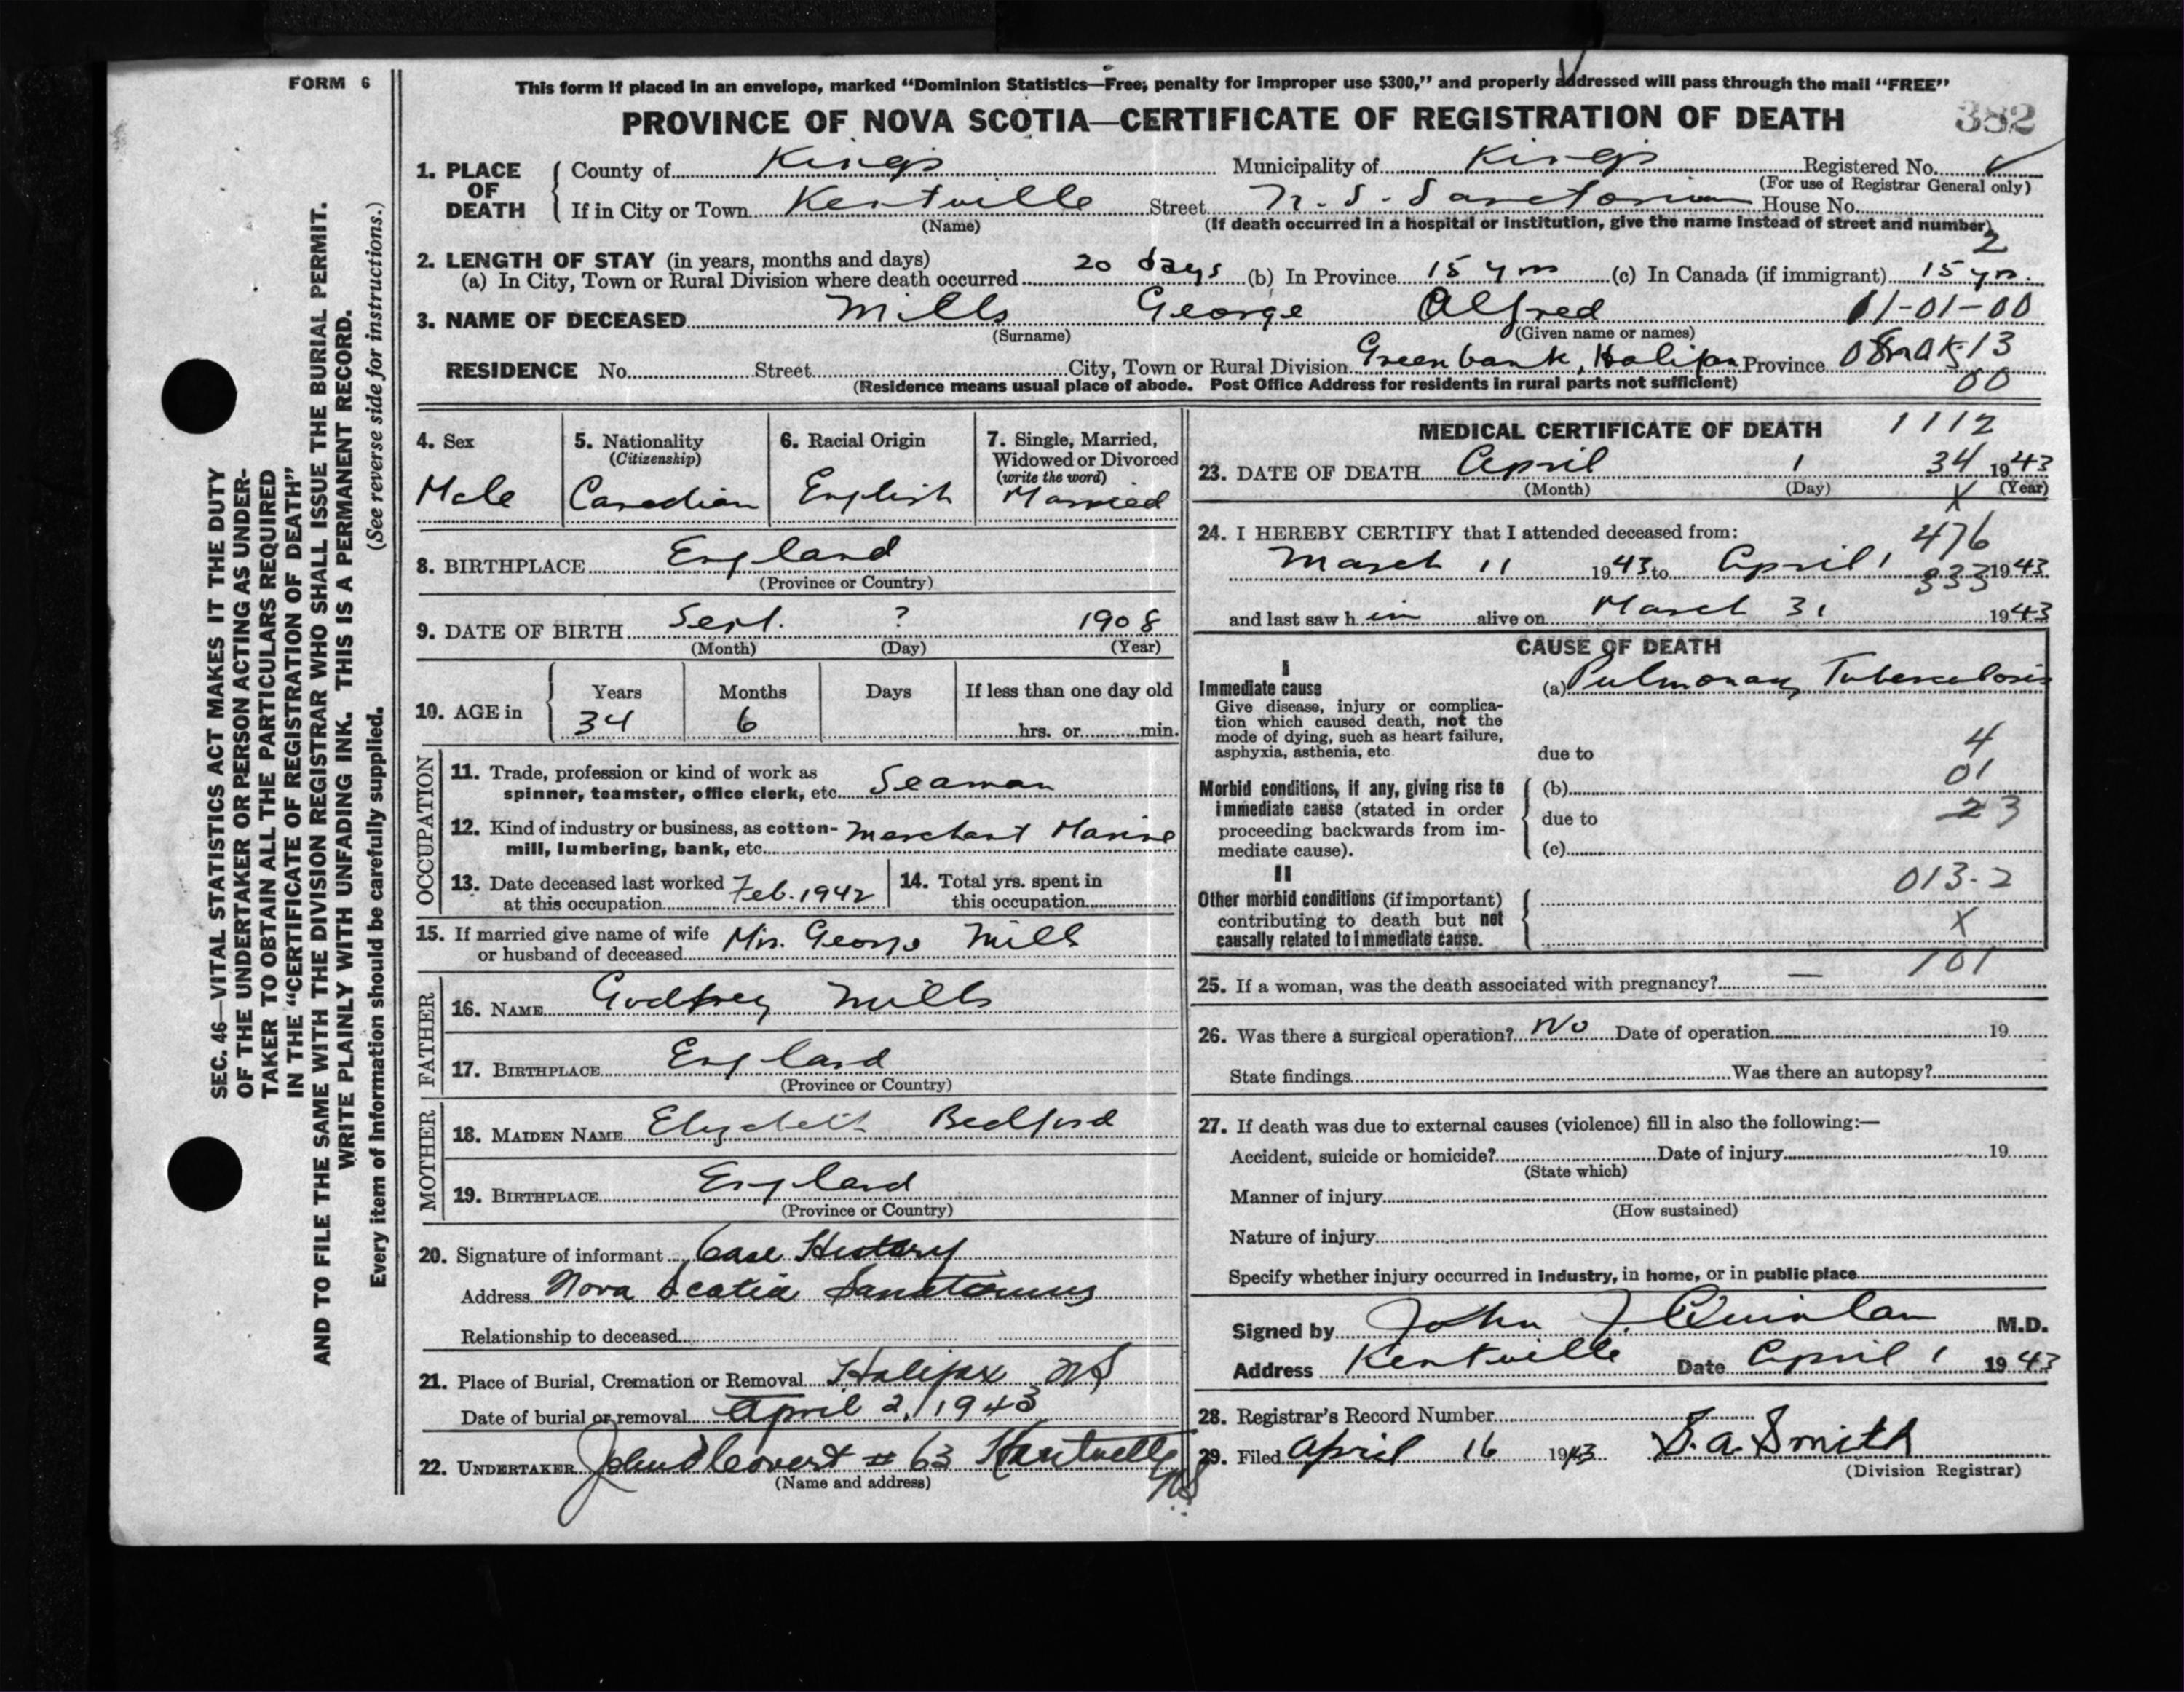 FORM 6
This form if placed in an envelope, marked “Dominion Statistics—Free; penalty for improper use $300,” and properly addressed will pass through the mail “FREE”
PROVINCE OF NOVA SCOTIA—CERTIFICATE OF REGISTRATION OF DEATH
382
1. PLACE OF DEATH
County of Kings Municipality of Kings Registered No.
(For use of Registrar General only)
If in City or Town Kentville Street N. S. Sanatorium House No.
(Name) (If death occurred in a hospital or institution, give the name instead of street and number)
2
2. LENGTH OF STAY (in years, months and days)
(a) In City, Town or Rural Division where death occurred 20 days (b) In Province 15 yrs (c) In Canada (if immigrant) 15 yrs.
3. NAME OF DECEASED Mills George Alfred 11-01-00
(Surname) (Given name or names)
RESIDENCE No. Street City, Town or Rural Division Greenbank, Halifax Province 13
(Residence means usual place of abode. Post Office Address for residents in rural parts not sufficient) 00
4. Sex
Male
5. Nationality
(Citizenship)
Canadian
6. Racial Origin
English
7. Single, Married,
Widowed or Divorced
(write the word)
Married
8. BIRTHPLACE England
(Province or Country)
9. DATE OF BIRTH Sept. ? 1908
(Month) (Day) (Year)
10. AGE in
Years Months Days If less than one day old
34 6 hrs. or min.
OCCUPATION
11. Trade, profession or kind of work as
spinner, teamster, office clerk, etc. Seaman
12. Kind of industry or business, as cotton-
mill, lumbering, bank, etc. Merchant Marine
13. Date deceased last worked
at this occupation Feb. 1942
14. Total yrs. spent in
this occupation
15. If married give name of wife
or husband of deceased Mrs. George Mills
FATHER
16. NAME Godfrey Mills
17. BIRTHPLACE England
(Province or Country)
MOTHER
18. MAIDEN NAME Elizabeth Bedford
19. BIRTHPLACE England
(Province or Country)
20. Signature of informant Case History
Address Nova Scotia Sanatorium
Relationship to deceased
21. Place of Burial, Cremation or Removal Halifax NS
Date of burial or removal April 2, 1943
22. UNDERTAKER # 63 Kentville NS
(Name and address)
MEDICAL CERTIFICATE OF DEATH 1112
23. DATE OF DEATH April 1 34 1943
(Month) (Day) (Year)
X
24. I HEREBY CERTIFY that I attended deceased from:
476
March 11 1943 to April 1 1943
333
and last saw h im alive on March 31 1943
CAUSE OF DEATH
I
Immediate cause
Give disease, injury or complica-
tion which caused death, not the
mode of dying, such as heart failure,
asphyxia, asthenia, etc
(a) Pulmonary Tuberculosis
due to
4
01
Morbid conditions, if any, giving rise to
immediate cause (stated in order
proceeding backwards from im-
mediate cause).
(b)
due to
23
(c)
II
Other morbid conditions (if important)
contributing to death but not
causally related to immediate cause.
013-2
X
101
25. If a woman, was the death associated with pregnancy? —
26. Was there a surgical operation? No Date of operation 19
State findings Was there an autopsy?
27. If death was due to external causes (violence) fill in also the following:—
Accident, suicide or homicide? Date of injury 19
(State which)
Manner of injury
(How sustained)
Nature of injury
Specify whether injury occurred in industry, in home, or in public place
Signed by John J. Quinlan M.D.
Address Kentville Date April 1 1943
28. Registrar’s Record Number
29. Filed April 16 1943 S. A. Smith
(Division Registrar)
SEC. 46—VITAL STATISTICS ACT MAKES IT THE DUTY
OF THE UNDERTAKER OR PERSON ACTING AS UNDER-
TAKER TO OBTAIN ALL THE PARTICULARS REQUIRED
IN THE “CERTIFICATE OF REGISTRATION OF DEATH”
AND TO FILE THE SAME WITH THE DIVISION REGISTRAR WHO SHALL ISSUE THE BURIAL PERMIT.
WRITE PLAINLY WITH UNFADING INK. THIS IS A PERMANENT RECORD.
Every item of information should be carefully supplied. (See reverse side for instructions.)